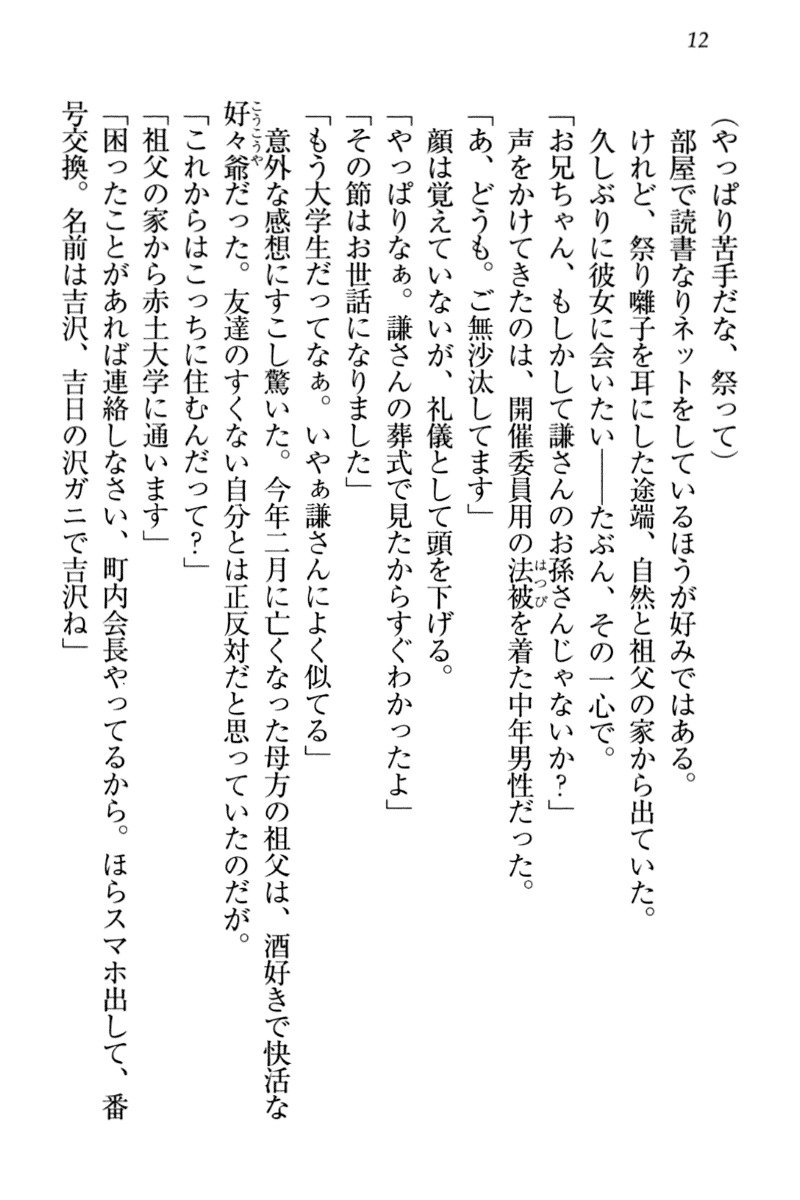 12
（やっぱり苦手だな、祭って）
部屋で読書なりネットをしているほうが好みではある。
けれど、祭り囃子を耳にした途端、自然と祖父の家から出ていた。
久しぶりに彼女に会いたい――たぶん、その一心で。
「お兄ちゃん、もしかして謙さんのお孫さんじゃないか？」
声をかけてきたのは、開催委員用の法被を着た中年男性だった。
はっぴ
「あ、どうも。ご無沙汰してます」
顔は覚えていないが、礼儀として頭を下げる。
「やっぱりなぁ。謙さんの葬式で見たからすぐわかったよ」
「その節はお世話になりました」
「もう大学生だってなぁ。いやぁ謙さんによく似てる」
意外な感想にすこし驚いた。今年二月に亡くなった母方の祖父は、酒好きで快活な
好々爺だった。友達のすくない自分とは正反対だと思っていたのだが。
こうこうや
「これからはこっちに住むんだって？」
「祖父の家から赤土大学に通います」
「困ったことがあれば連絡しなさい、町内会長やってるから。ほらスマホ出して、番
号交換。名前は吉沢、吉日の沢ガニで吉沢ね」